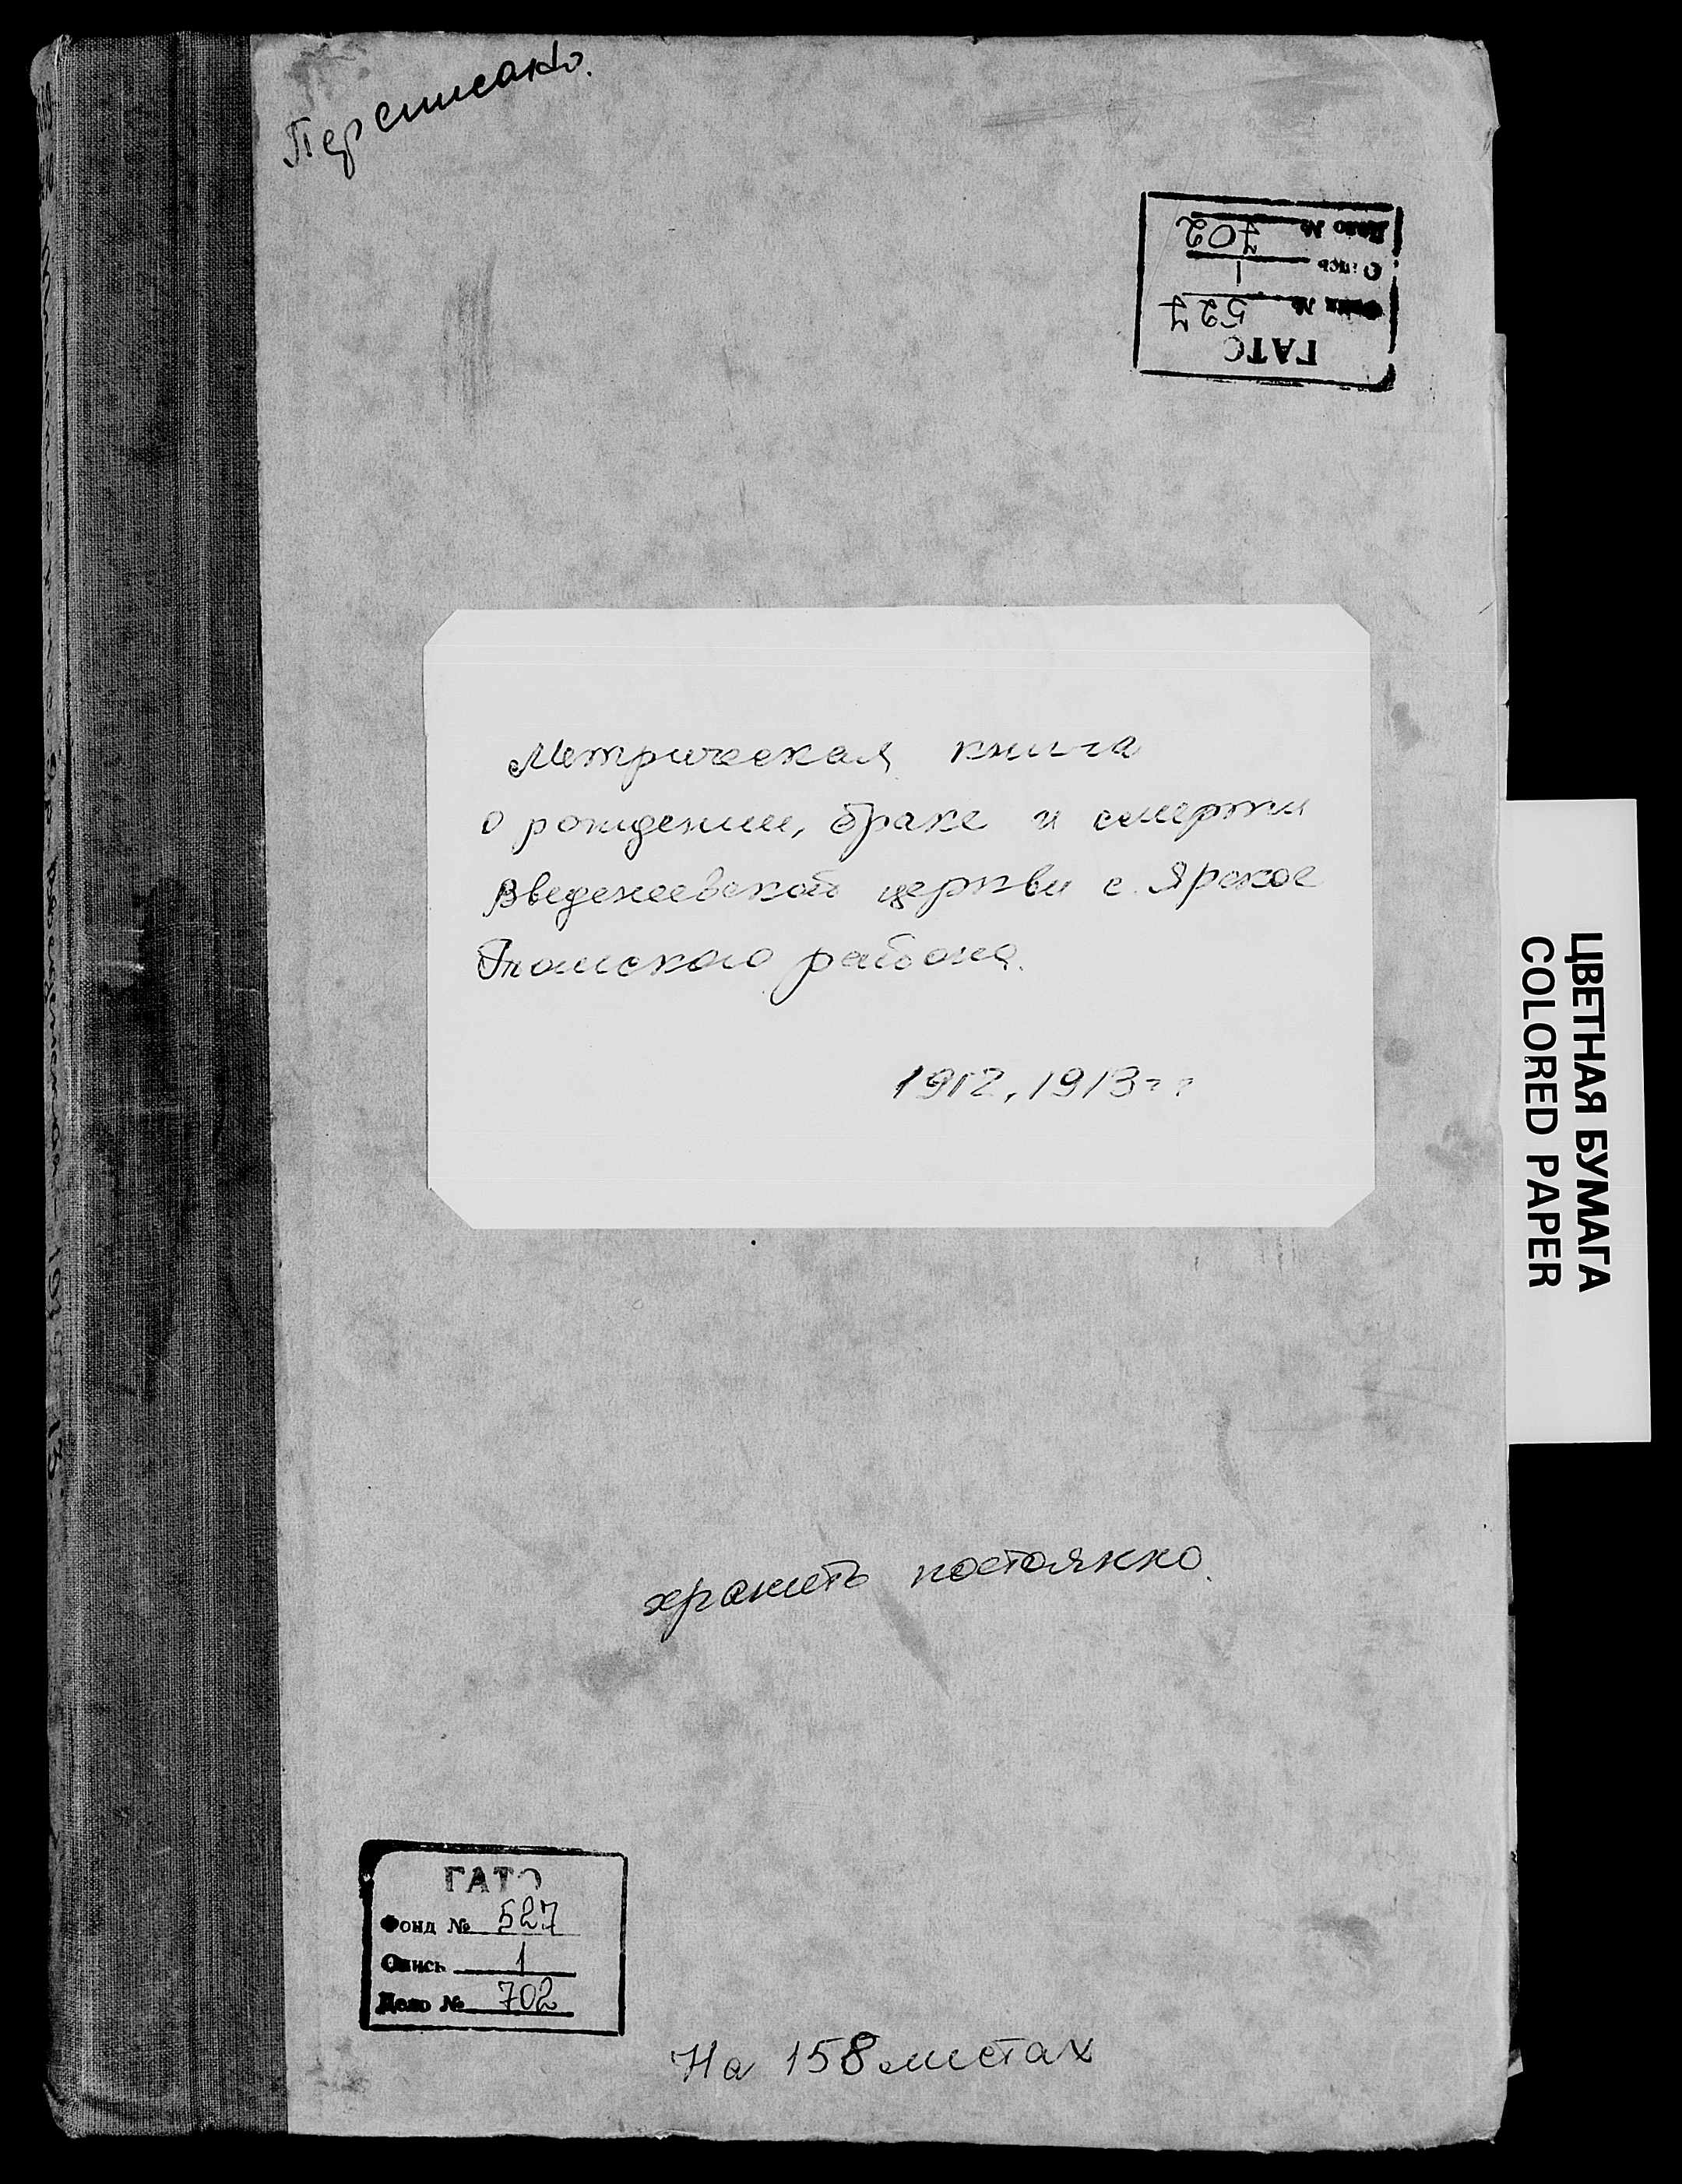 Переписано.
ГАТО
Фонд № 527
Опись 1
Дело № 702
Метрическая книга
о рождении, браке и смерти
Введенеевской церкви с. Ярское
Томского района.
1912, 1913 гг
ЦВЕТНАЯ БУМАГА
COLORED PAPER
хранить постоянно.
ГАТО
Фонд № 527
Опись 1
Дело № 702
На 158 листах